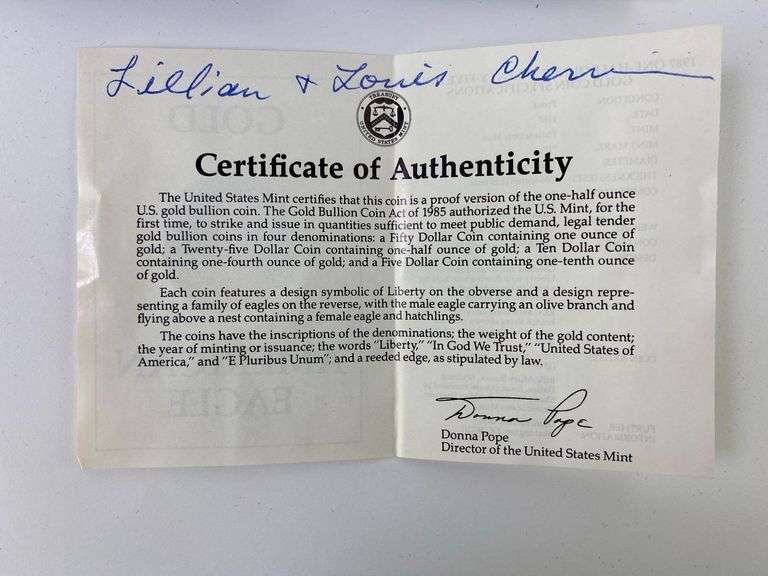 Lillian + Louis
TREASURY
UNITED STATES MINT
Certificate of Authenticity
The United States Mint certifies that this coin is a proof version of the one-half ounce
U.S. gold bullion coin. The Gold Bullion Coin Act of 1985 authorized the U.S. Mint, for the
first time, to strike and issue in quantities sufficient to meet public demand, legal tender
gold bullion coins in four denominations: a Fifty Dollar Coin containing one ounce of
gold; a Twenty-five Dollar Coin containing one-half ounce of gold; a Ten Dollar Coin
containing one-fourth ounce of gold; and a Five Dollar Coin containing one-tenth ounce
of gold.
Each coin features a design symbolic of Liberty on the obverse and a design repre-
senting a family of eagles on the reverse, with the male eagle carrying an olive branch and
flying above a nest containing a female eagle and hatchlings.
The coins have the inscriptions of the denominations; the weight of the gold content;
the year of minting or issuance; the words “Liberty,” “In God We Trust,” “United States of
America,” and “E Pluribus Unum”; and a reeded edge, as stipulated by law.
Donna Pope
Donna Pope
Director of the United States Mint